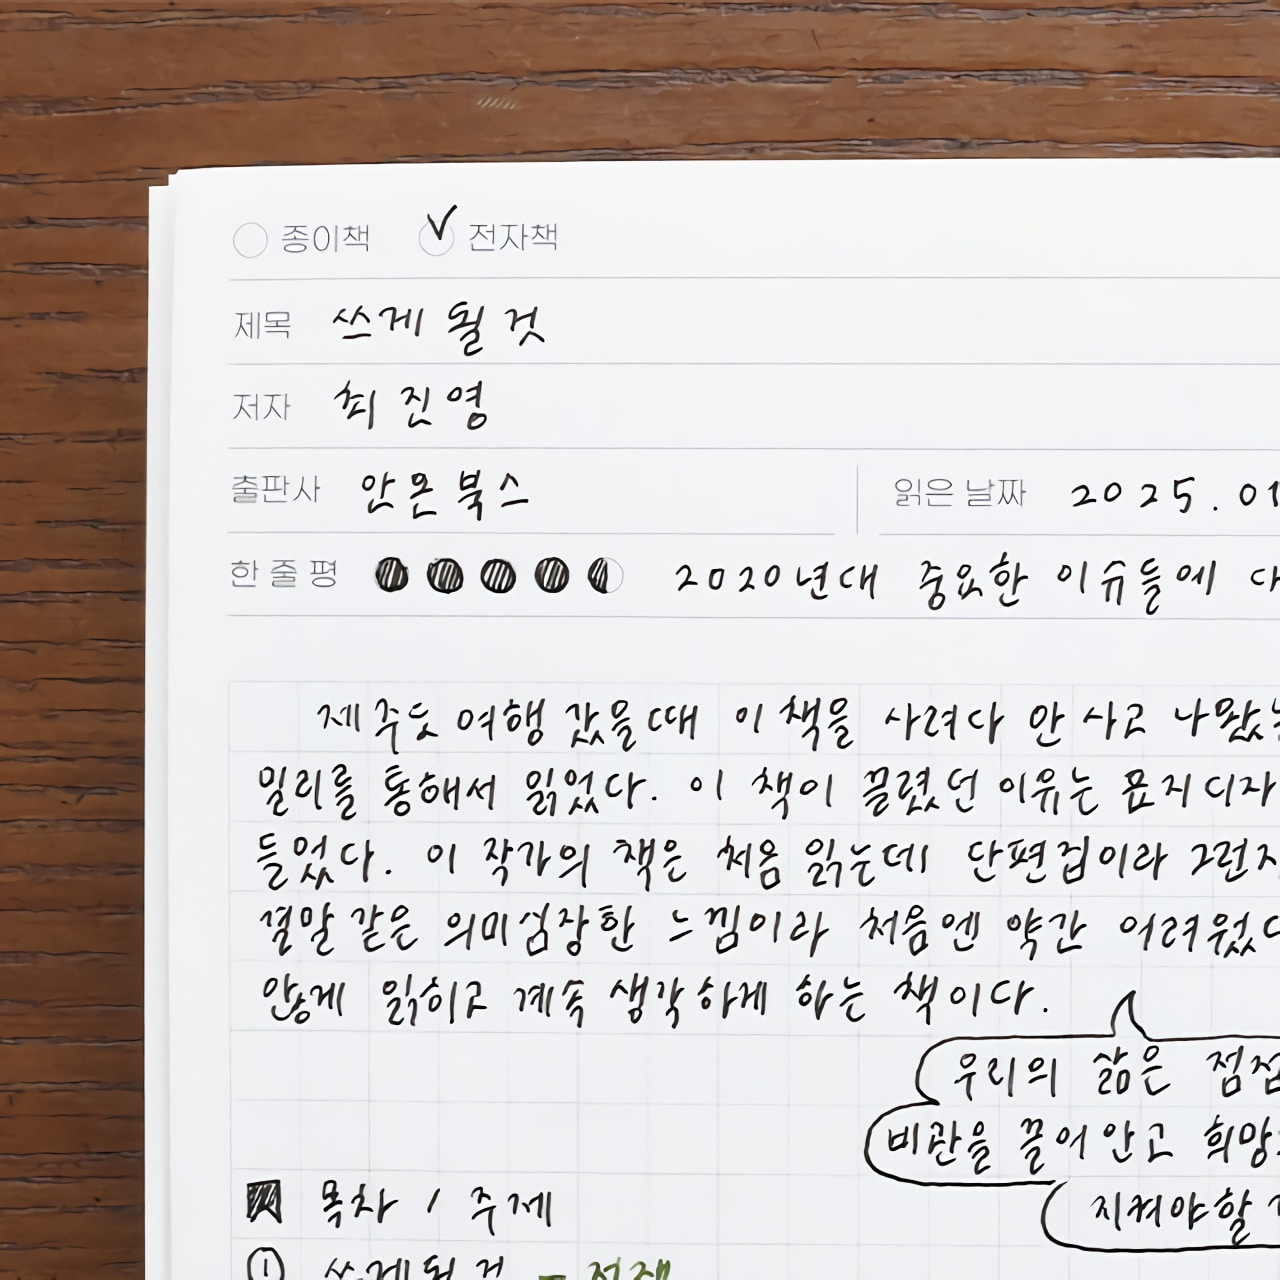 종이책 전자책
제목 쓰게 될 것
저자 최진영
출판사 안온북스 읽은 날짜 2025.01
한 줄 평 2020년대 중요한 이슈들에
제주도 여행 갔을때 이 책을 사려다 안 사고
밀리를 통해서 읽었다. 이 책이 끌렸던 이유는 표지디자
들었다. 이 작가의 책은 처음 읽는데 단편집이라 그런지
결말 같은 의미심장한 느낌이라 처음엔 약간 어려웠
않게 읽히고 계속 생각하게 하는 책이다.
우리의 삶은 점점
비관을 끌어안고 희망
지켜야할
목차 / 주제
① 쓰게 될 것 - 전쟁